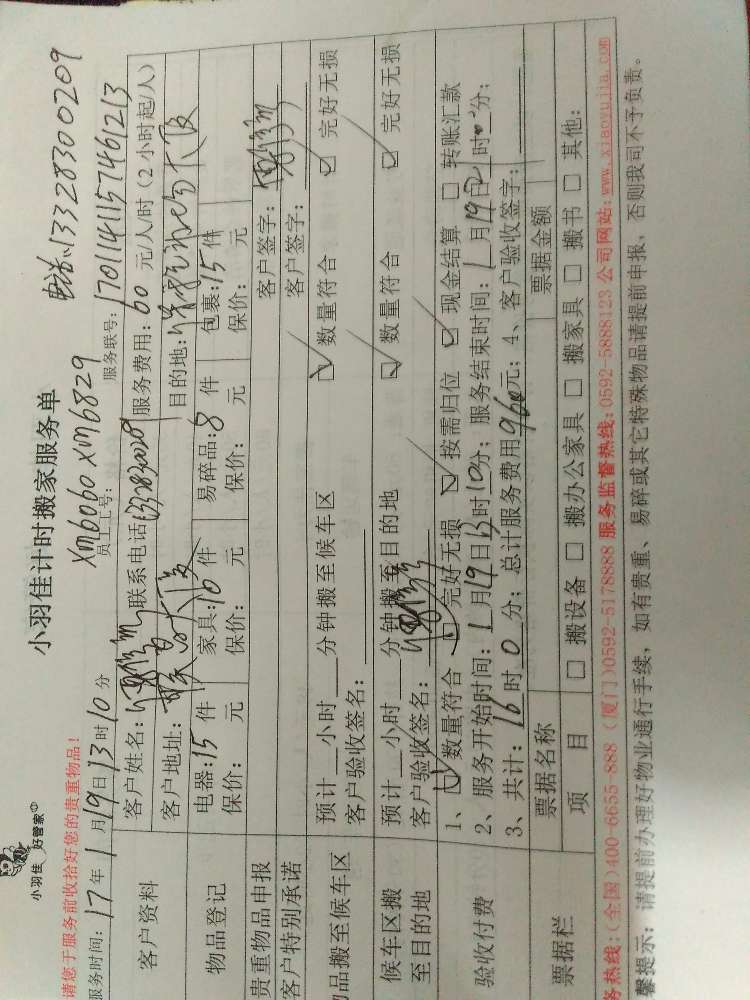 小羽佳 好管家
小羽佳计时搬家服务单
电话:13328300209
请您于服务前收拾好您的贵重物品!
xm6060 xm6829
服务时间: 17年1月19日13时10分 员工工号: 服务联号: 1701141157461213
客户资料
客户姓名: 联系电话 服务费用: 60 元/人/时(2小时起/人)
客户地址: 目的地:
物品登记
电器: 15件 家具: 10件 易碎品: 8件 包裹: 15件
保价: 元 保价: 元 保价: 元 保价: 元
贵重物品申报 客户签字:
客户特别承诺 客户签字:
品搬至候车区
预计__小时__分钟搬至候车区 ☑ 数量符合 ☑ 完好无损
客户验收签名:
候车区搬至目的地
预计__小时__分钟搬至目的地 ☑ 数量符合 ☑ 完好无损
客户验收签名:
验收付费
1、☑ 数量符合 ☑ 完好无损 ☑ 按需归位 ☑ 现金结算 □ 转账汇款
2、服务开始时间: 1月19日13时10分; 服务结束时间: 1月19日21时__分;
3、共计: 16时0分; 总计服务费用960元; 4、客户验收签字:
票据栏
票据名称 票据金额
项目 □ 搬设备 □ 搬办公家具 □ 搬家具 □ 搬书 □ 其他:
务热线:(全国)400-6655-888 (厦门)0592-5178888 服务监督热线:0592-5888123 公司网站:www.xiaoyujia.com
馨提示: 请提前办理好物业通行手续, 如有贵重、易碎或其它特殊物品请提前申报, 否则我司不予负责。